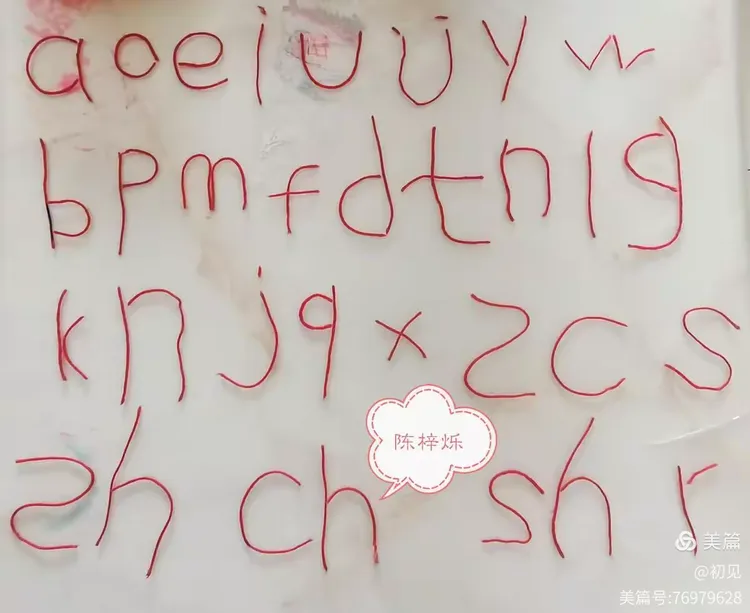 a o e i u ü y w
b p m f d t n l g
k n j q x z c s
陈梓烁
zh ch sh r
美篇
@初见
美篇号:76979628